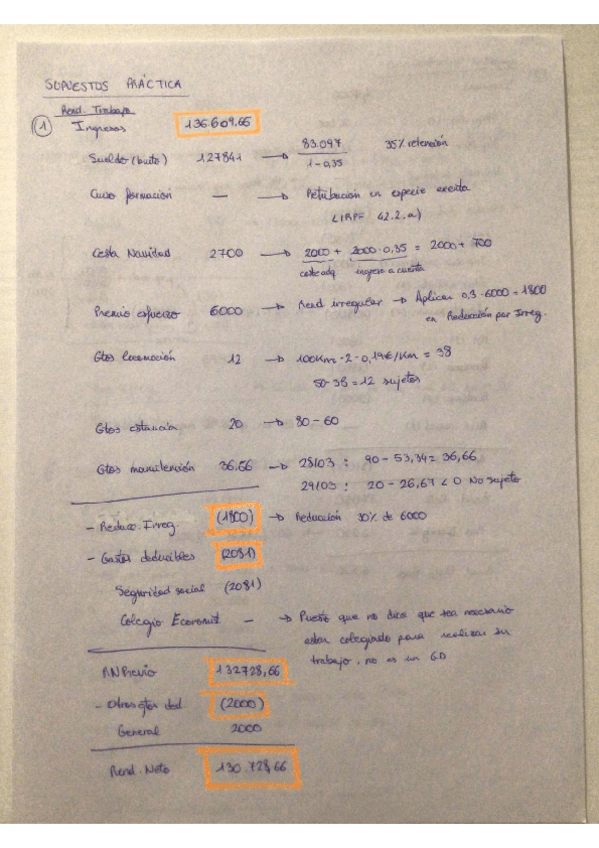 SUPUESTOS PRÁCTICA
Rend. Trabajo
① Ingresos 136.609,66
Sueldo (bruto) 127841 → 83.097 / 1-0,35 35% retención
Curso formación — → Retribución en especie exenta
LIRPF 42.2.a)
Cesta Navidad 2700 → 2000 + 2000·0,35 = 2000+ 700
coste adq ingreso a cuenta
Premio esfuerzo 6000 → Rend irregular → Aplicar 0,3·6000 = 1800
en Reducción por Irreg.
Gtos locomoción 12 → 100Km·2·0,19€/Km = 38
50-38 = 12 sujetos
Gtos estancia 20 → 80-60
Gtos manutención 36,66 → 28/03 : 90 - 53,34 = 36,66
29/03 : 20 - 26,67 < 0 No sujeto
- Reducc. Irreg. (1800) → Reducción 30% de 6000
- Gastos deducibles (2081)
Seguridad social (2081)
Colegio Economist — → Puesto que no dice que sea necesario
estar colegiado para realizar su
trabajo, no es un GD
RN Previo 132728,66
- Otros gtos ded. (2000)
General 2000
Rend. Neto 130.728,66